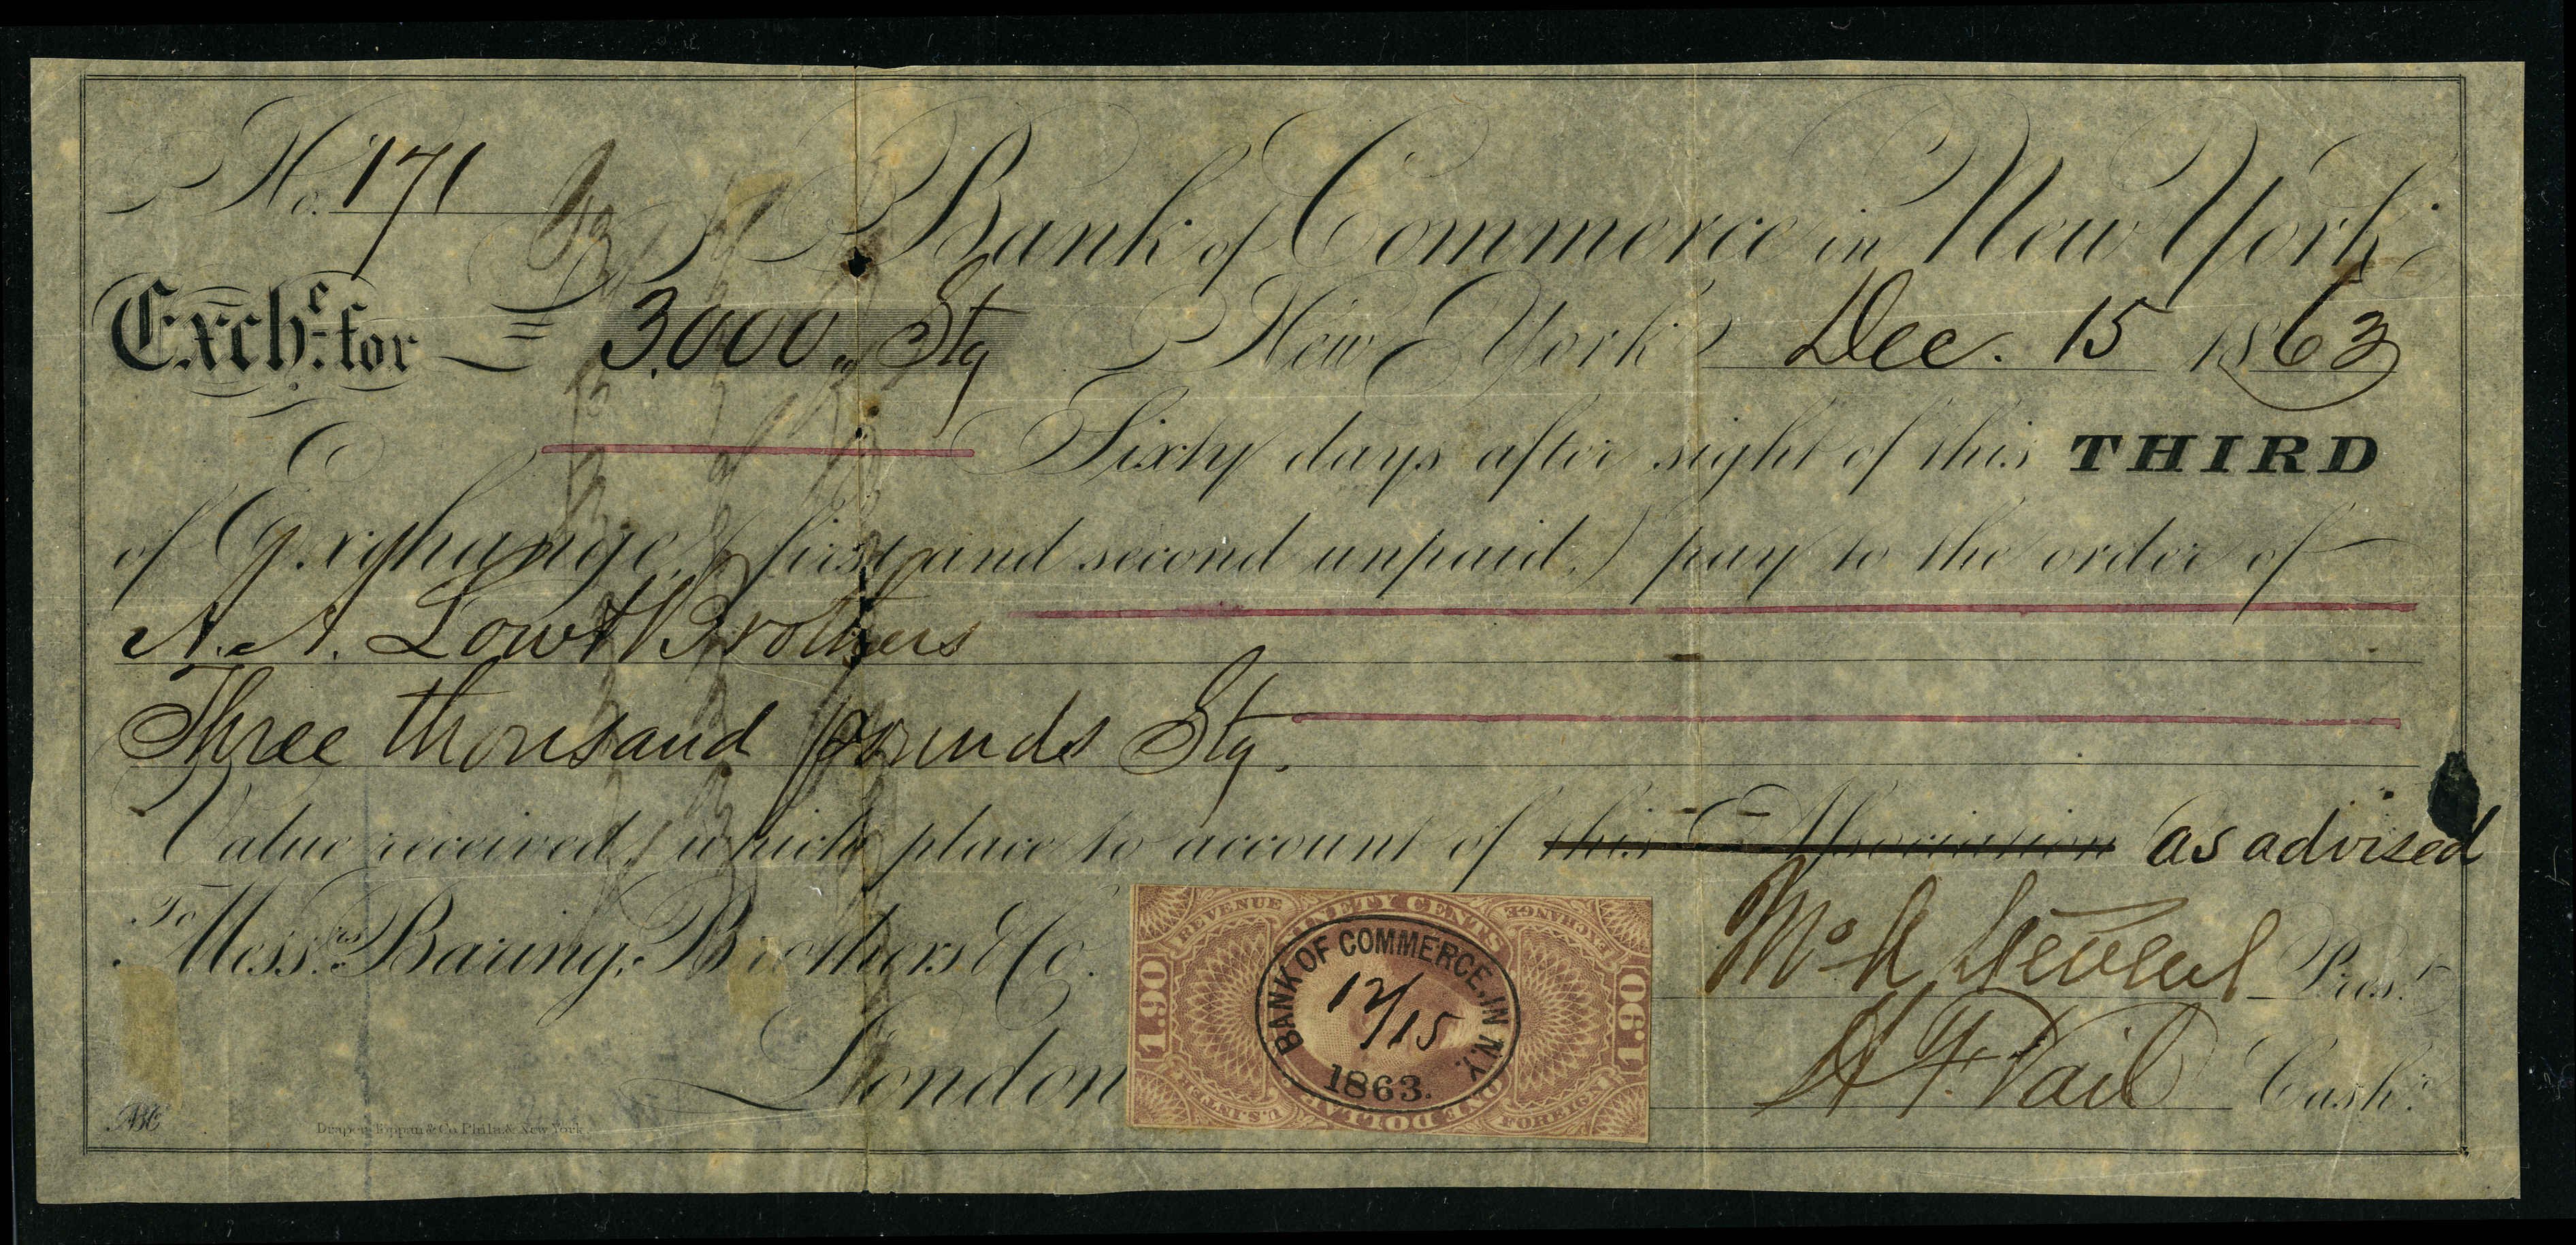 No. 171
Bank of Commerce in New York
Exch:e for £ 3,000 „ Stg New York Dec. 15 1863
Sixty days after sight of this THIRD
of Exchange, (first and second unpaid,) pay to the order of
A. A. Low & Brothers
Three thousand pounds Stg.
Value received, which place to account of this Association as advised
To Messrs. Baring, Brothers & Co.
London
REVENUE NINETY CENTS EXCHANGE
1.90 1.90
U.S. INTER ONE DOLLAR FOREIGN
BANK OF COMMERCE, IN N.Y.
12/15
1863.
Pres.t
H. F. Vail Cash.r
ABC
Draper, Toppan & Co. Phila. & New York.